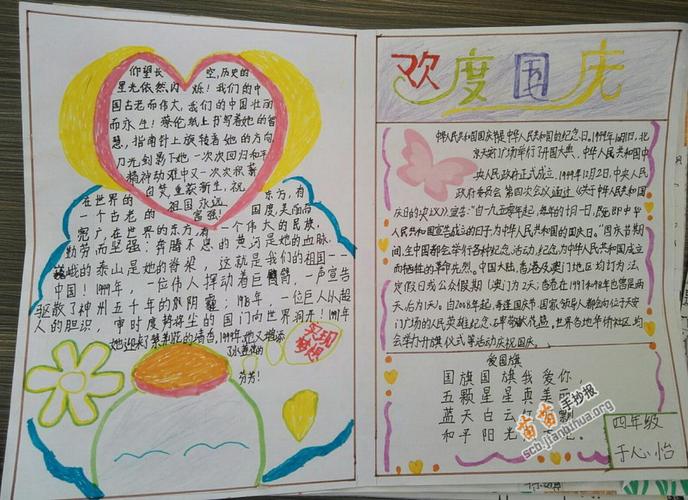 仰望长空,历史的
星光依然闪烁!我们的中
国古老而伟大,我们的中国壮丽
而永生!蔡伦纸上书写着她的智
慧,指南针上旋转着她的方向,
刀光剑影下她一次次回归和平
精神动难中又一次次积蓄
自梦,重获新生,祝
祖国永远
富强!
在世界的东方,有
一个古老的国度,美丽而
宽广,在世界的东方,有一个伟大的民族,
勤劳而坚强:奔腾不息的黄河是她的血脉,
巍峨的泰山是她的脊梁,这就是我们的祖国——
中国!1949年,一位伟人挥动着巨臂,一声宣告
驱散了神州五十年的阴霾;1978年,一位巨人以超
人的胆识,审时度势将尘封的国门向世界洞开!1997年
她迎来了紫荆花的清香,1999年,她又增添
了水莲花的
芬芳!
实现
梦想
欢度国庆
中华人民共和国国庆节是中华人民共和国的纪念日。1949年10月1日,北
京天安门广场举行了开国大典,中华人民共和国中
央人民政府正式成立。1949年12月2日,中央人民
政府委员会第四次会议通过《关于中华人民共和国
国庆日的决议》宣告:“自一九五零年起,每年的十月一日,既即中华
人民共和国宣告成立的日子为中华人民共和国的国庆日。”国庆节期
间,全中国都会举行各种纪念活动,纪念为中华人民共和国成立
而牺牲的革命先烈。中国大陆,香港及澳门地区均订为法
定假日或公众假期(澳门为2天;香港在1997-1998也曾是两
天,后为1天)。自2008年起,每逢国庆节,国家领导人都会向位于天安
门广场的人民英雄纪念碑敬献花篮,世界各地华侨社区,均
会举办升旗仪式等活动庆祝国庆。
爱国旗
国旗国旗我爱你,
五颗星星真美丽
蓝天白云
和平阳光
苗苗手抄报
scb.jianghua.org
四年级
于心怡